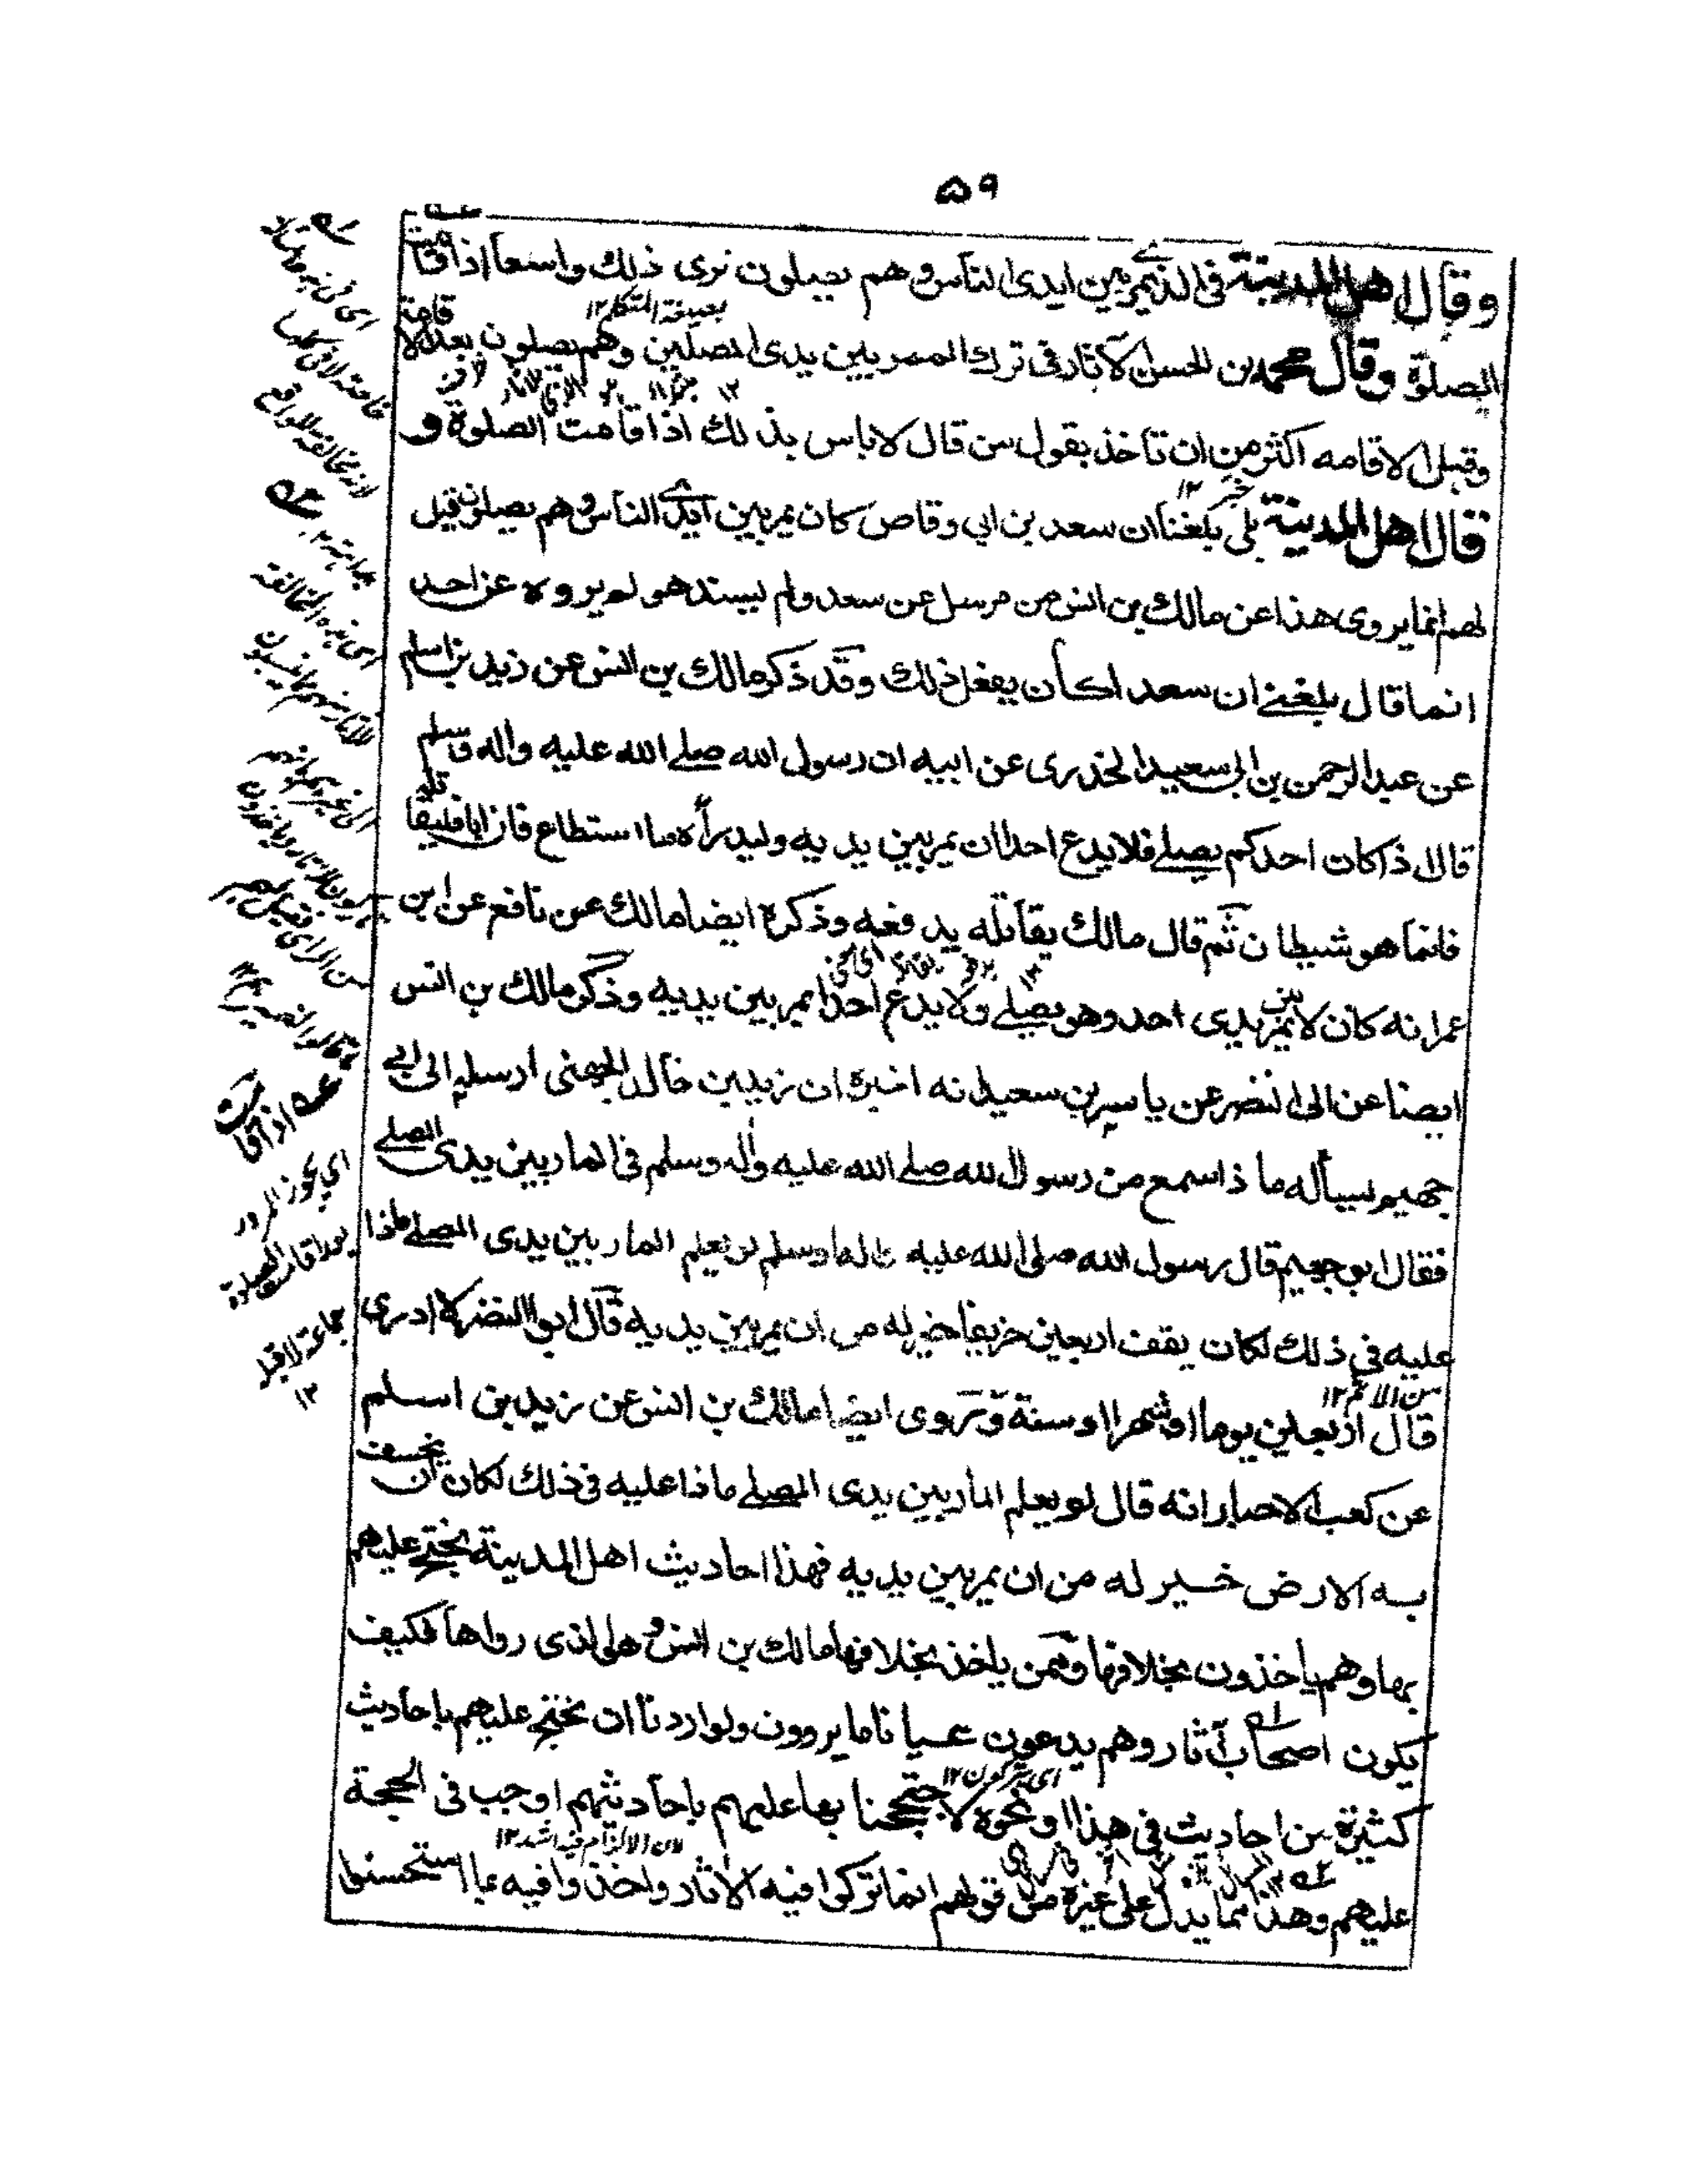 ٥٩
وقال اهل المدينة فى الذى يمر بين ايدى الناس وهم يصلون نرى ذلك واسعا اذا قامت
بصيغة المتكلم ١٢
الصلوة وقال محمد بن الحسن الآثار فى ترك الممر بين يدى المصلين وهم يصلون بعد الاقامة
وقبل الاقامه اكثر من ان تاخذ بقول من قال لا باس بذلك اذا قامت الصلوة و
خبر ١٢
قال اهل المدينة بلى بلغنا ان سعد بن ابي وقاص كان يمر بين ايدى الناس وهم يصلون قيل
لهم انما يروى هذا عن مالك بن انس من مرسل عن سعد ولم يسنده هو لم يروه عن احد
انما قال بلغنى ان سعدا كان يفعل ذلك وقد ذكر مالك بن انس عن زيد بن اسلم
عن عبد الرحمن بن ابى سعيد الخدرى عن ابيه ان رسول الله صلى الله عليه واله وسلم
قال اذا كان احدكم يصلى فلا يدع احدا ان يمر بين يديه وليدرأه ما استطاع فان ابا فليقاتله
فانما هو شيطان ثم قال مالك يقاتله يدفعه وذكره ايضا مالك عن نافع عن ابن
عمر انه كان لا يمر بين يدى احد وهو يصلى ولا يدع احدا يمر بين يديه وذكر مالك بن انس
ايضا عن ابى النضر عن ياسر بن سعيد انه اخبره ان زيد بن خالد الجهنى ارسله الى ابى
جهيم يسأله ماذا سمع من رسول الله صلى الله عليه واله وسلم فى المار بين يدى المصلى
فقال ابو جهيم قال رسول الله صلى الله عليه واله وسلم لو يعلم المار بين يدى المصلى ماذا
عليه فى ذلك لكان يقف اربعين خريفا خير له من ان يمر بين يديه قال ابو النضر لا ادرى
من الاثم ١٢
قال اربعين يوما او شهرا او سنة وروى ايضا مالك بن انس عن زيد بن اسلم
عن كعب الاحبار انه قال لو يعلم المار بين يدى المصلى ماذا عليه فى ذلك لكان ان يخسف
به الارض خير له من ان يمر بين يديه فهذا احاديث اهل المدينة يحتج عليهم
بها وهم ياخذون بخلافها وممن ياخذ بخلافها مالك بن انس وهو الذى رواها فكيف
يكون اصحاب آثار وهم يدعون عيانا ما يروون ولو اردنا ان نحتج عليهم باحاديث
اى يتركون ١٢
كثيرة من احاديث فى هذا او نحوه لاحتججنا بها عليهم باحاديثهم اوجب فى الحجة
لان الالزام فيه اشد ١٢
عليهم وهذا مما يدل على غيره من قولهم انما تركوا فيه الآثار واخذوا فيه بما استحسنوا
عه اذا قامت
اى يجوز المرور
بعد اقامة الصلوة
جماعة لا قبل
١٢